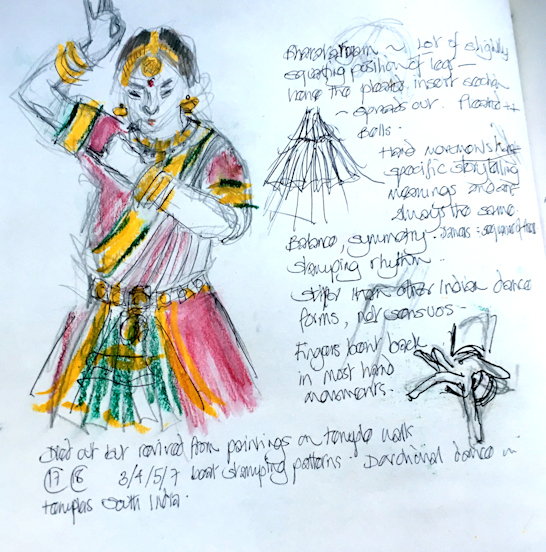 Bharatanatyam ~ Lot of slightly
squatting position of legs -
hence the pleated insert section
~ spreads out. Pleated ++
Bells.
Hand movements have
specific storytelling
meanings and are
always the same.
Balance, symmetry.
stamping rhythm..
stiffer than other Indian dance
forms, not sensuos -
Fingers bent back
in most hand
movements.
Died out but revived from paintings on temple walls
17 18 3/4/5/7 beat stamping patterns. Devotional dance in
temples South India.